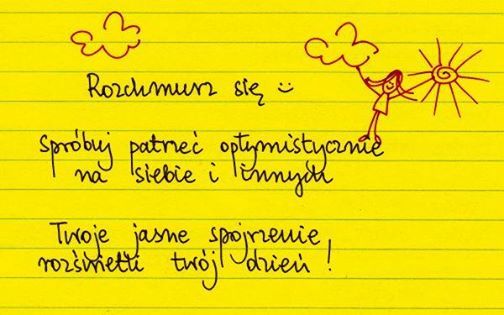 Rozchmurz się :)
Spróbuj patrzeć optymistycznie
na siebie i innych
Twoje jasne spojrzenie
rozświetli twój dzień!